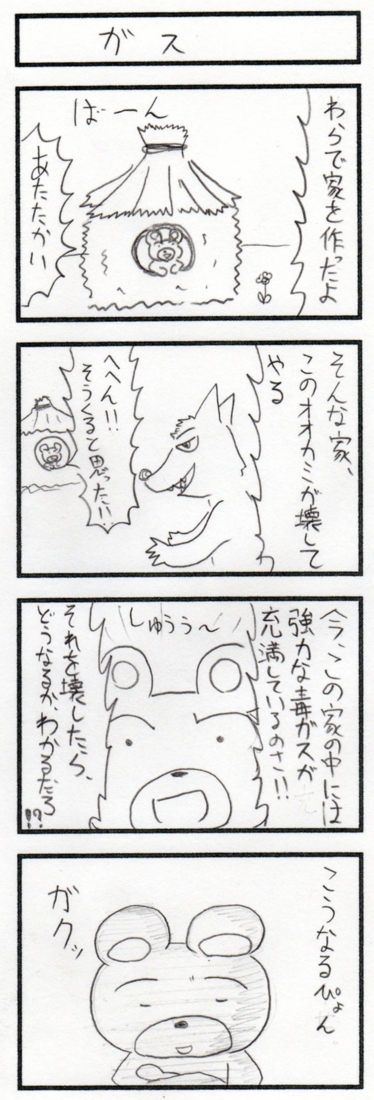 ガス
わらで家を作ったよ
ばーん
あたたかい
そんな家、
このオオカミが壊して
やる
へへん!!
そうくると思ったい!!
今、この家の中には
強力な毒ガスが
充満しているのさ!!
しゅうぅ～
それを壊したら、
どうなるか、わかるだろ!?
こうなるぴょん
ガクッ